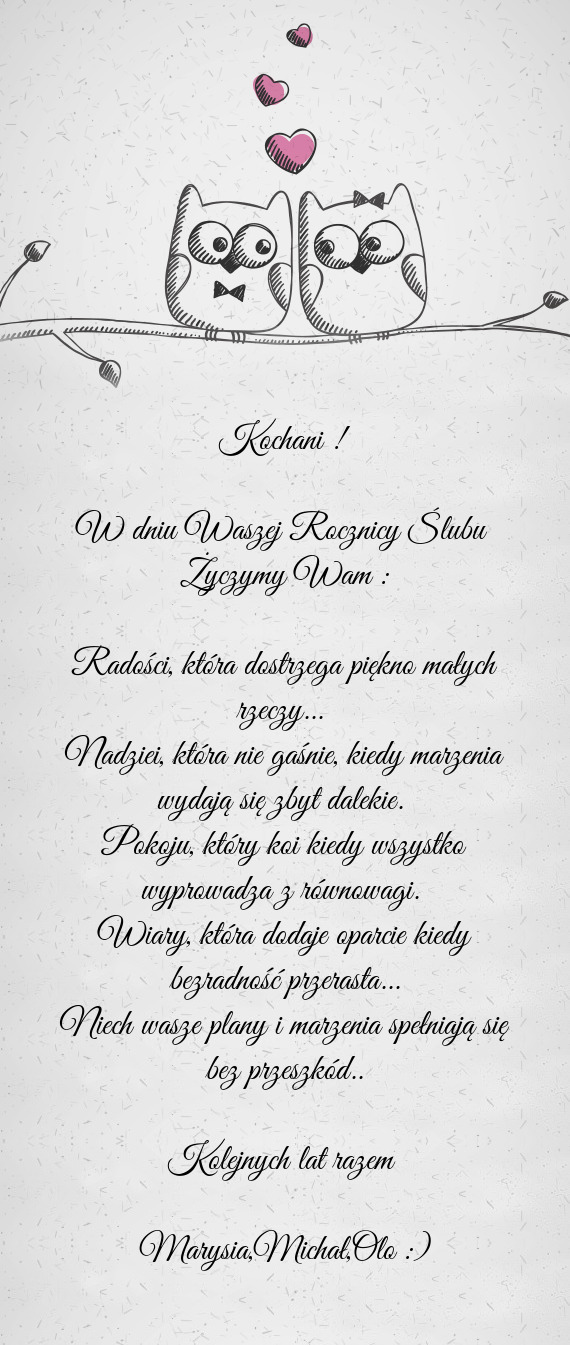 Kochani !
W dniu Waszej Rocznicy Ślubu
Życzymy Wam :
Radości, która dostrzega piękno małych
rzeczy...
Nadziei, która nie gaśnie, kiedy marzenia
wydają się zbyt dalekie.
Pokoju, który koi kiedy wszystko
wyprowadza z równowagi.
Wiary, która dodaje oparcie kiedy
bezradność przerasta...
Niech wasze plany i marzenia spełniają się
bez przeszkód..
Kolejnych lat razem
Marysia,Michał,Olo :)